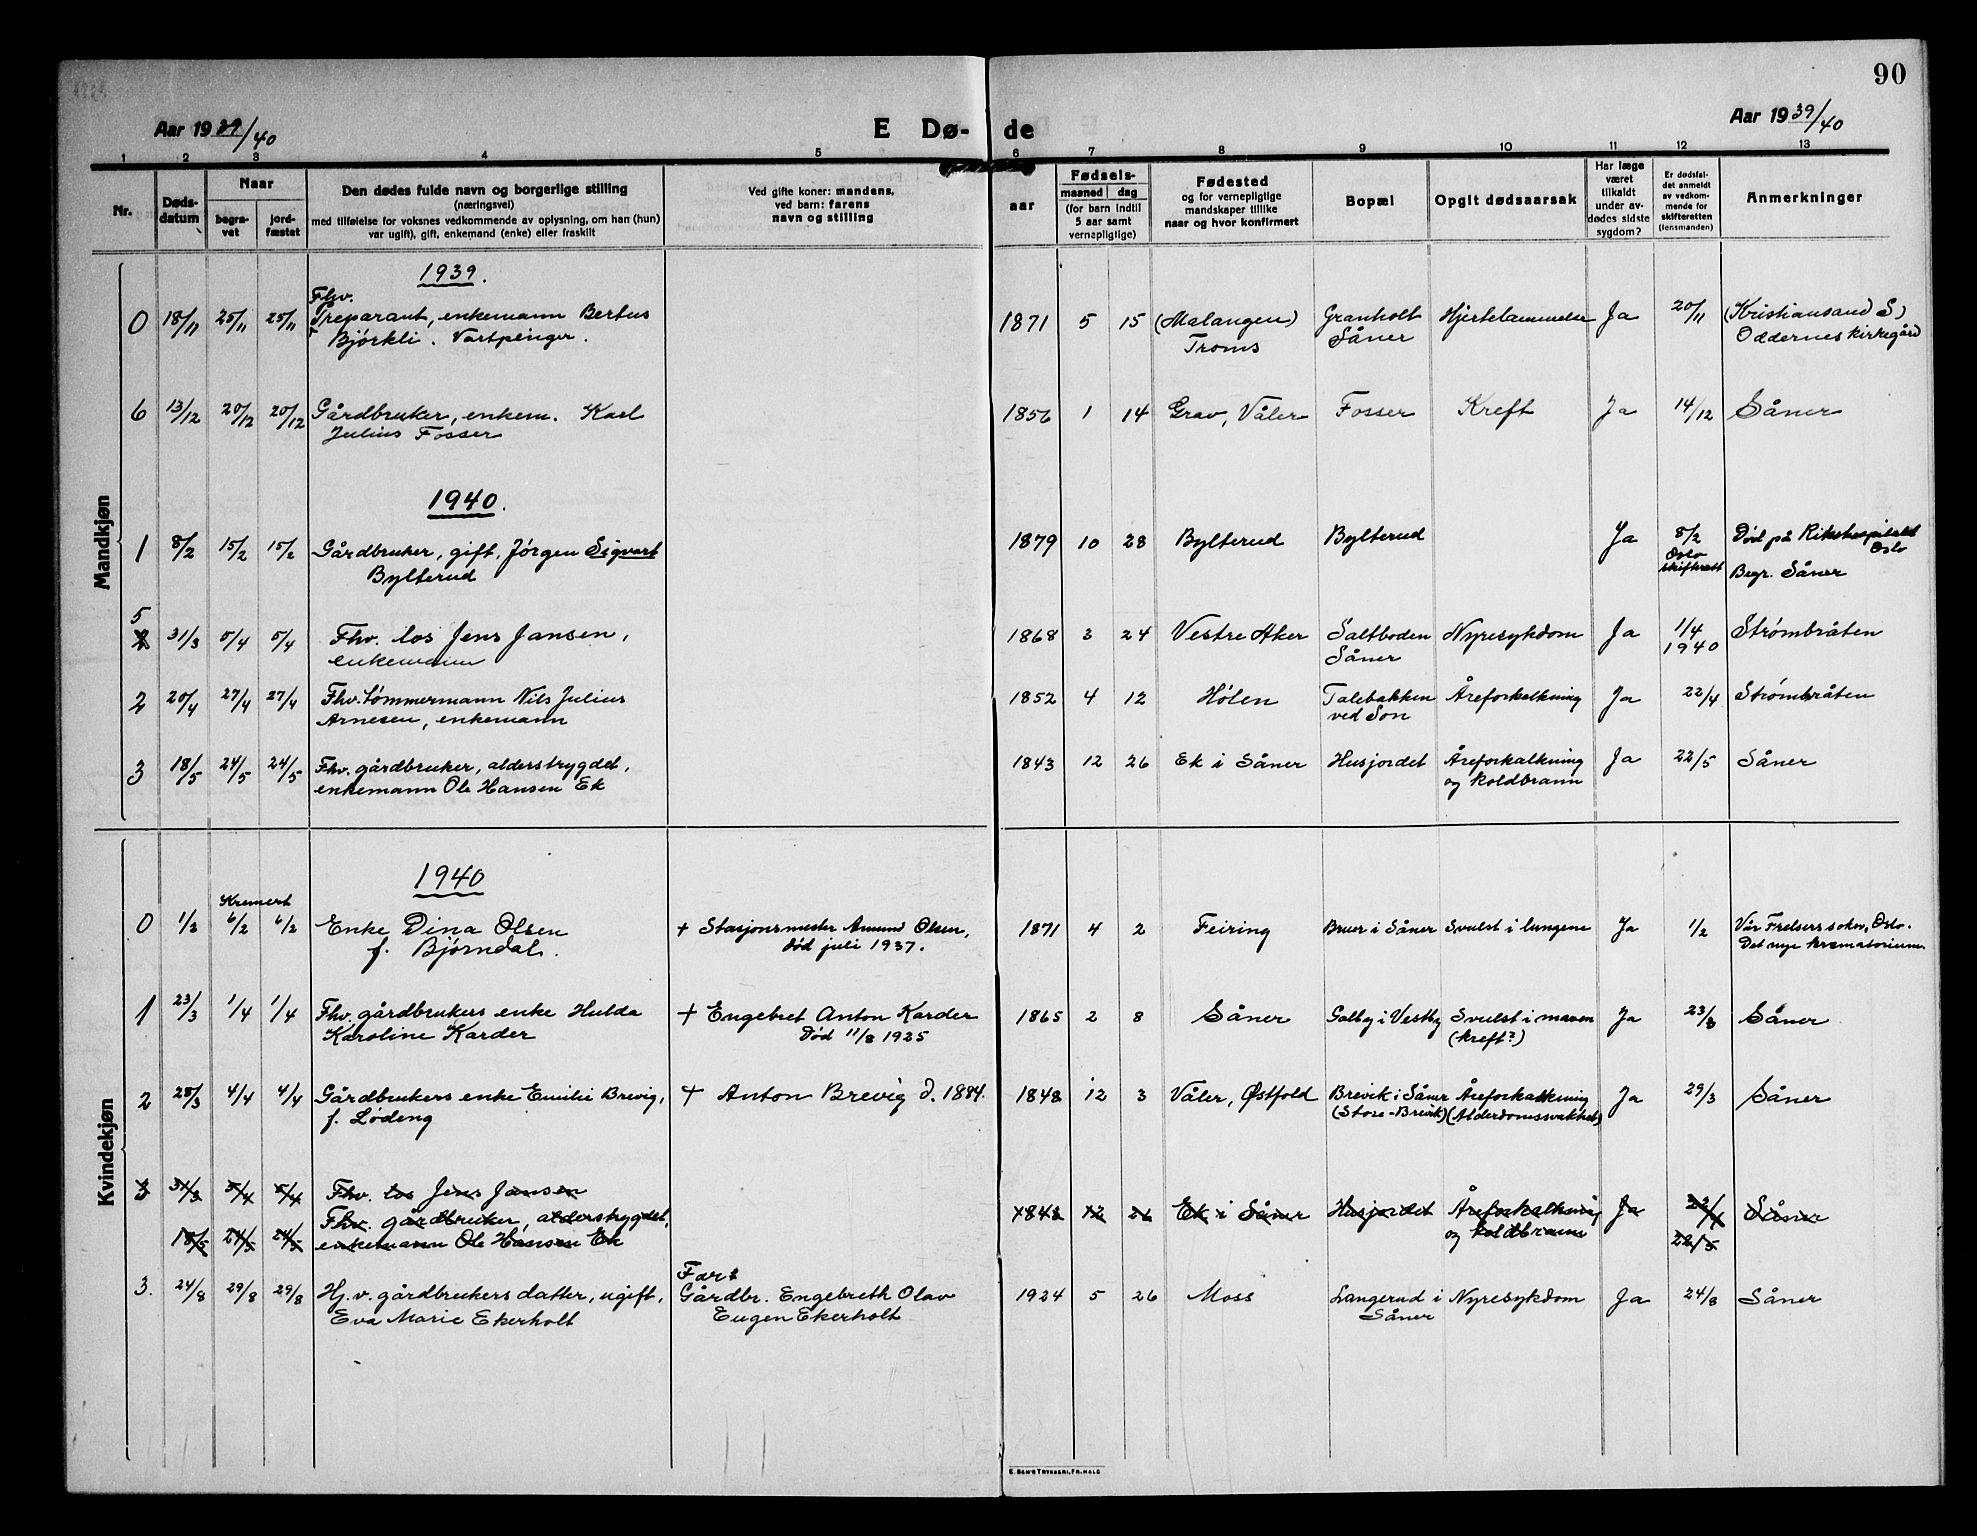 90
Aar 1939/40
E Dø- de
Aar 1939/40
1 2 3 4 5 6 7 8 9 10 11 12 13
Nr.
Døds-
datum
Naar
begra-
vet
jord-
fæstet
Den dødes fulde navn og borgerlige stilling
(næringsvei)
med tilføielse for voksnes vedkommende av oplysning, om han (hun)
var ugift), gift, enkemand (enke) eller fraskilt
Ved gifte koner: mandens,
ved barn: farens
navn og stilling
Fødsels-
aar
maaned dag
(for barn indtil
5 aar samt
vernepligtige)
Fødested
og for vernepligtige
mandskaper tillike
naar og hvor konfirmert
Bopæl
Opgit dødsaarsak
Har læge
været
tilkaldt
under av-
dødes sidste
sygdom?
Er dødsfal-
det anmeldt
av vedkom-
mende for
skifteretten
(lensmanden)
Anmerkninger
Mandkjøn
1939.
Fhv.
0 18/11 25/11 25/11 Preparant, enkemann Bertus 1871 5 15 (Malangen) Granholt Hjertelammelse Ja 20/11 (Kristiansand S)
Bjørkli. Vartpenger. Troms Såner Oddernes kirkegård
6 13/12 20/12 20/12 Gårdbruker, enkem. Karl 1856 1 14 Grav, Våler Fosser Kreft Ja 14/12 Såner
Julius Fosser
1940.
1 8/2 15/2 15/2 Gårdbruker, gift, Jørgen Sigvart 1879 10 28 Bylterud Bylterud Ja 8/2 Død på Rikshospitalet
Bylterud Oslo skifterett Oslo
Begr. Såner
5
31/3 5/4 5/4 Fhv. los Jens Jansen, 1868 3 24 Vestre Aker Saltboden Nyresykdom Ja 1/4 Strømbråten
enkemann Såner 1940
2 20/4 27/4 27/4 Fhv. tømmermann Nils Julius 1852 4 12 Hølen Talebakken Åreforkalkning Ja 22/4 Strømbråten
Arnesen, enkemann ved Son
3 18/5 24/5 24/5 Fhv. gårdbruker, alderstrygdet, 1843 12 26 Ek i Såner Husjordet Åreforkalkning Ja 22/5 Såner
enkemann Ole Hansen Ek og koldbrann
Kvindekjøn
1940
Kremert
0 1/2 6/2 6/2 Enke Dina Olsen + Stasjonsmester Amund Olsen, 1871 4 2 Feiring Bruer i Såner Svulst i lungene Ja 1/2 Vår Frelsers sokn, Oslo.
f. Bjørndal. død juli 1937. Det nye krematorium.
1 23/3 1/4 1/4 Fhv. gårdbrukers enke Hulda + Engebret Anton Karder 1865 2 8 Såner Galby i Vestby Svulst i maven Ja 23/3 Såner
Karoline Karder Død 11/8 1925 (kreft?)
2 28/3 4/4 4/4 Gårdbrukers enke Emilie Brevig, + Anton Brevig d. 1884. 1848 12 3 Våler, Østfold Brevik i Såner Åreforkalkning Ja 29/3 Såner
f. Lødeng (Store-Brevik) (Alderdomssvakhet)
3 31/3 5/4 5/4 Fhv. los Jens Jansen
Fhv. gårdbruker, alderstrygdet, 1843 12 26 Ek i Såner Husjordet Åreforkalkning Ja 22/4 Såner
18/5 24/5 24/5 enkemann Ole Hansen Ek og koldbrann 22/5
Far:
3. 24/8 29/8 29/8 Hj.v. gårdbrukers datter, ugift, Gårdbr. Engebreth Olav 1924 5 26 Moss Langerud i Nyresykdom Ja 24/8 Såner
Eva Marie Ekerholt Eugen Ekerholt Såner
E. SEM'S TRYKKERI, FR.HALD